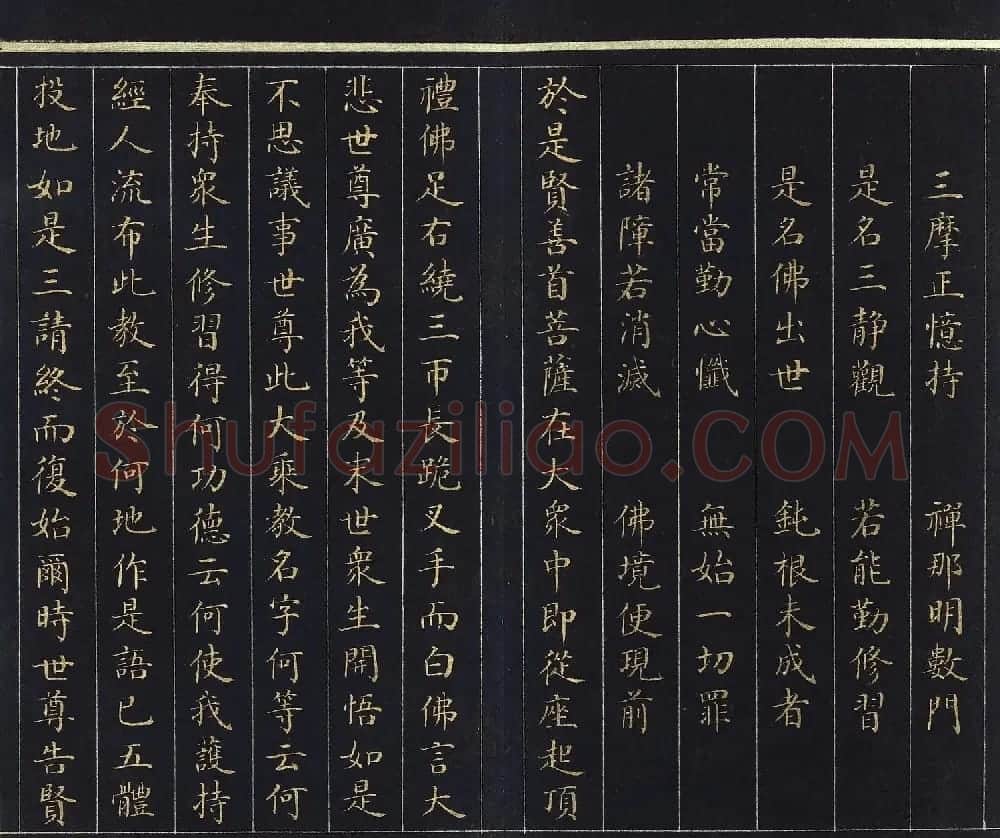 三摩正憶持　禪那明數門
是名三靜觀　若能勤修習
是名佛出世　鈍根未成者
常當勤心懺　無始一切罪
諸障若消滅　佛境便現前
於是賢善首菩薩在大衆中即從座起頂
禮佛足右繞三帀長跪叉手而白佛言大
悲世尊廣為我等及末世衆生開悟如是
不思議事世尊此大乘教名字何等云何
奉持衆生修習得何功德云何使我護持
經人流布此教至於何地作是語已五體
投地如是三請終而復始爾時世尊告賢
Shufaziliao.COM